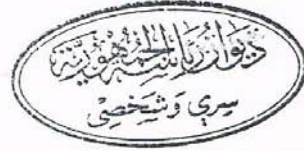 ديوان رئاسة الجمهورية
سري وشخصي